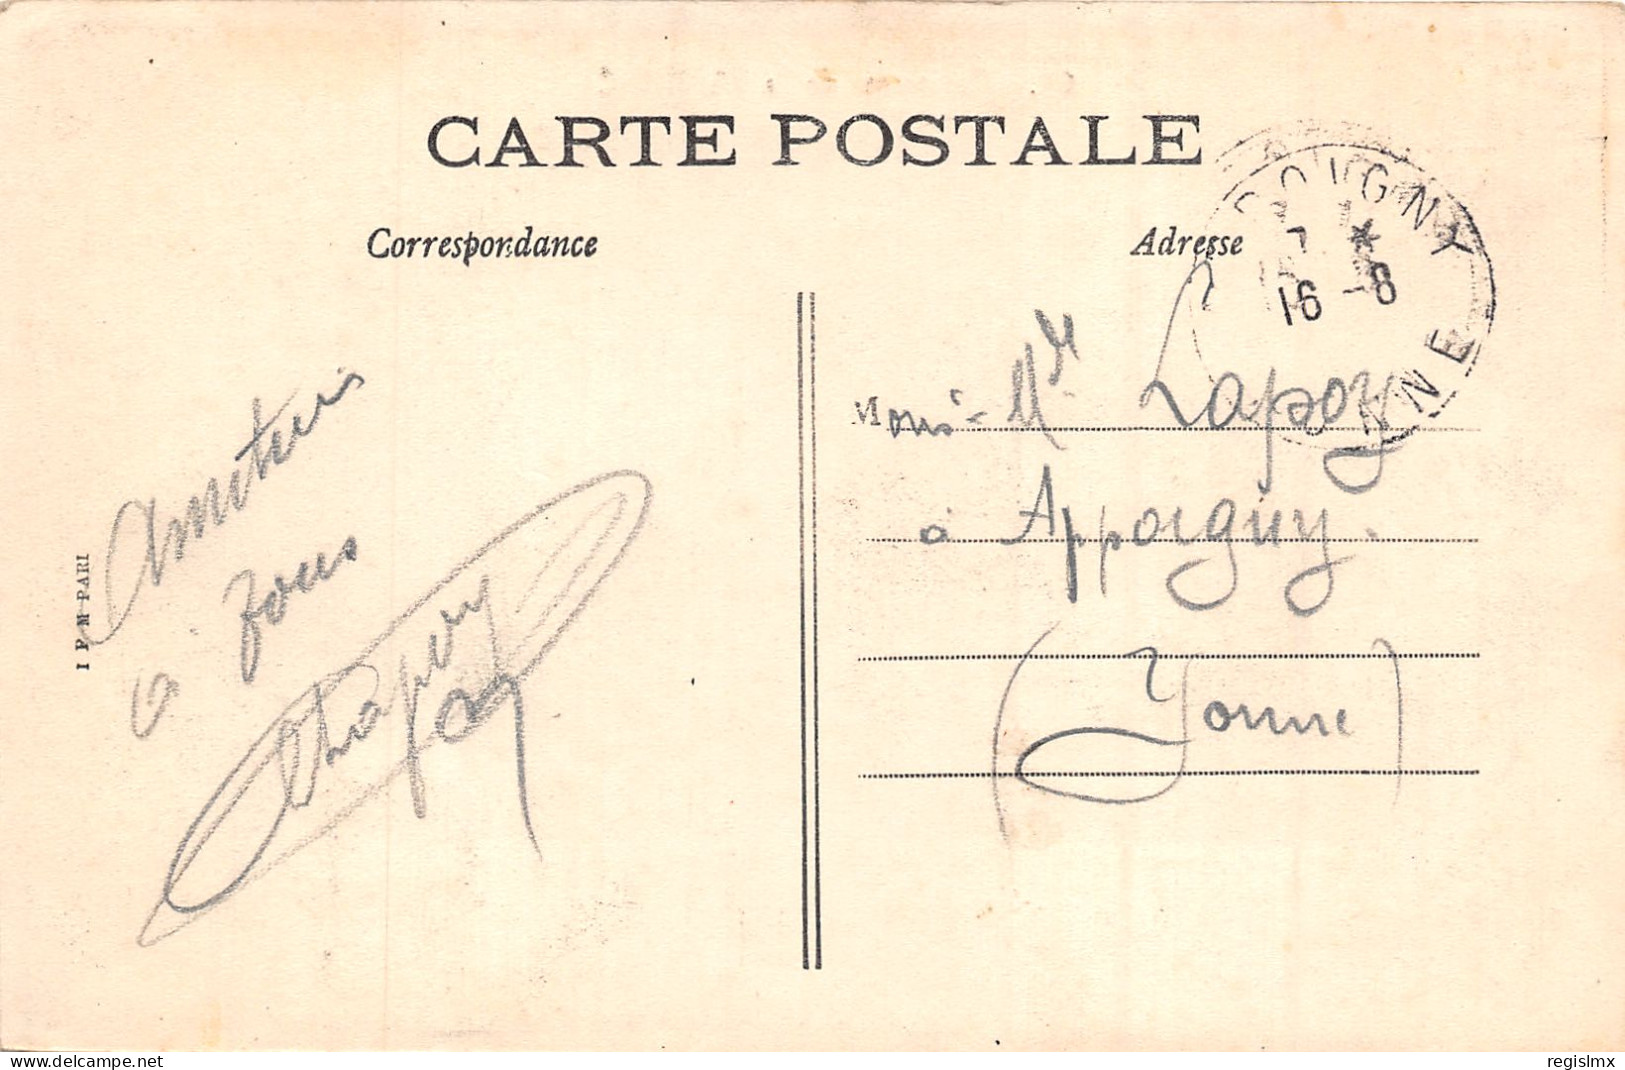 CARTE POSTALE
Correspondance
Adresse
OIGNY
7 *
16 -8
YONNE
Amitiés
à tous
I P M PARI
à Appoigny.
(Yonne)
delcampe.net
regislmx